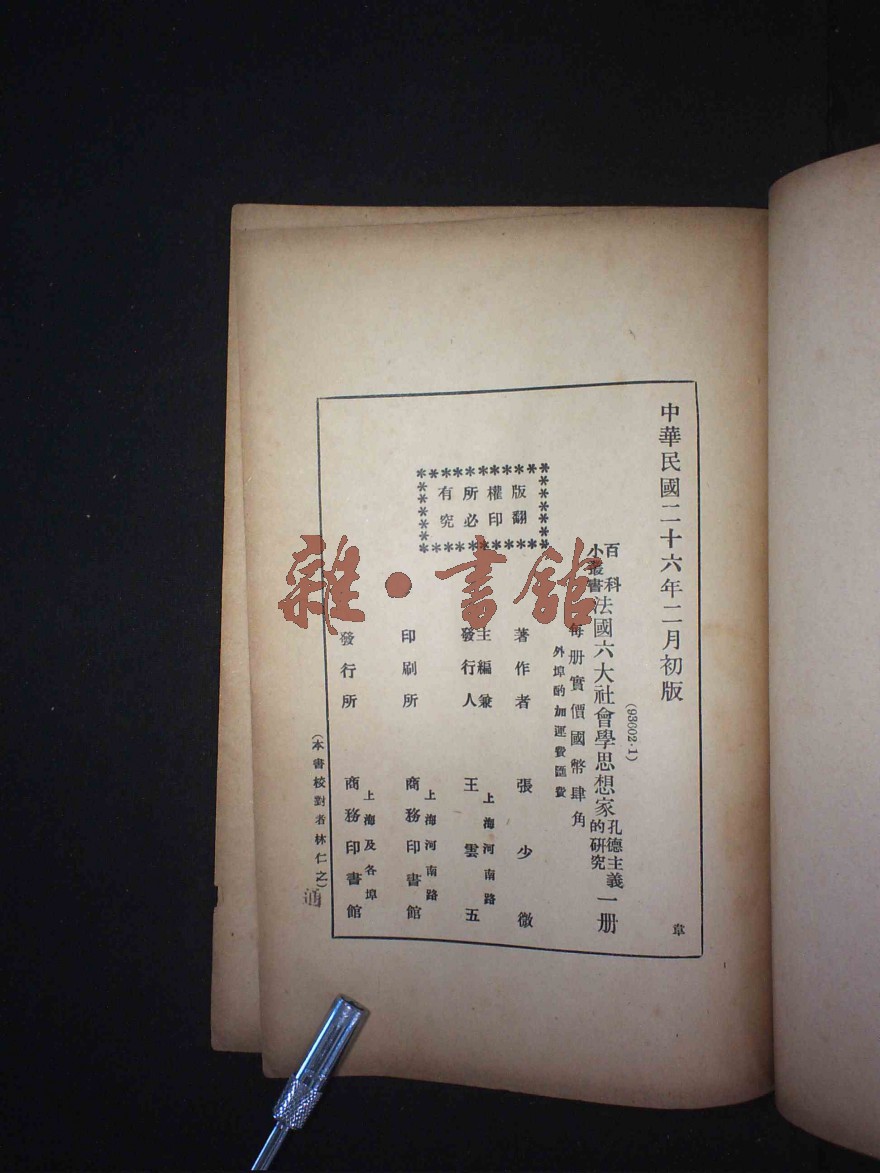 中華民國二十六年二月初版
(93002·1)
百科小叢書 法國六大社會學思想家 孔德主義的研究 一册
每册實價國幣肆角
外埠酌加運費匯費
版權所有
翻印必究
著作者 張少微
主編兼發行人 王雲五
上海河南路
印刷所 商務印書館
上海河南路
發行所 商務印書館
上海及各埠
(本書校對者林仁之)
韋
雜·書館